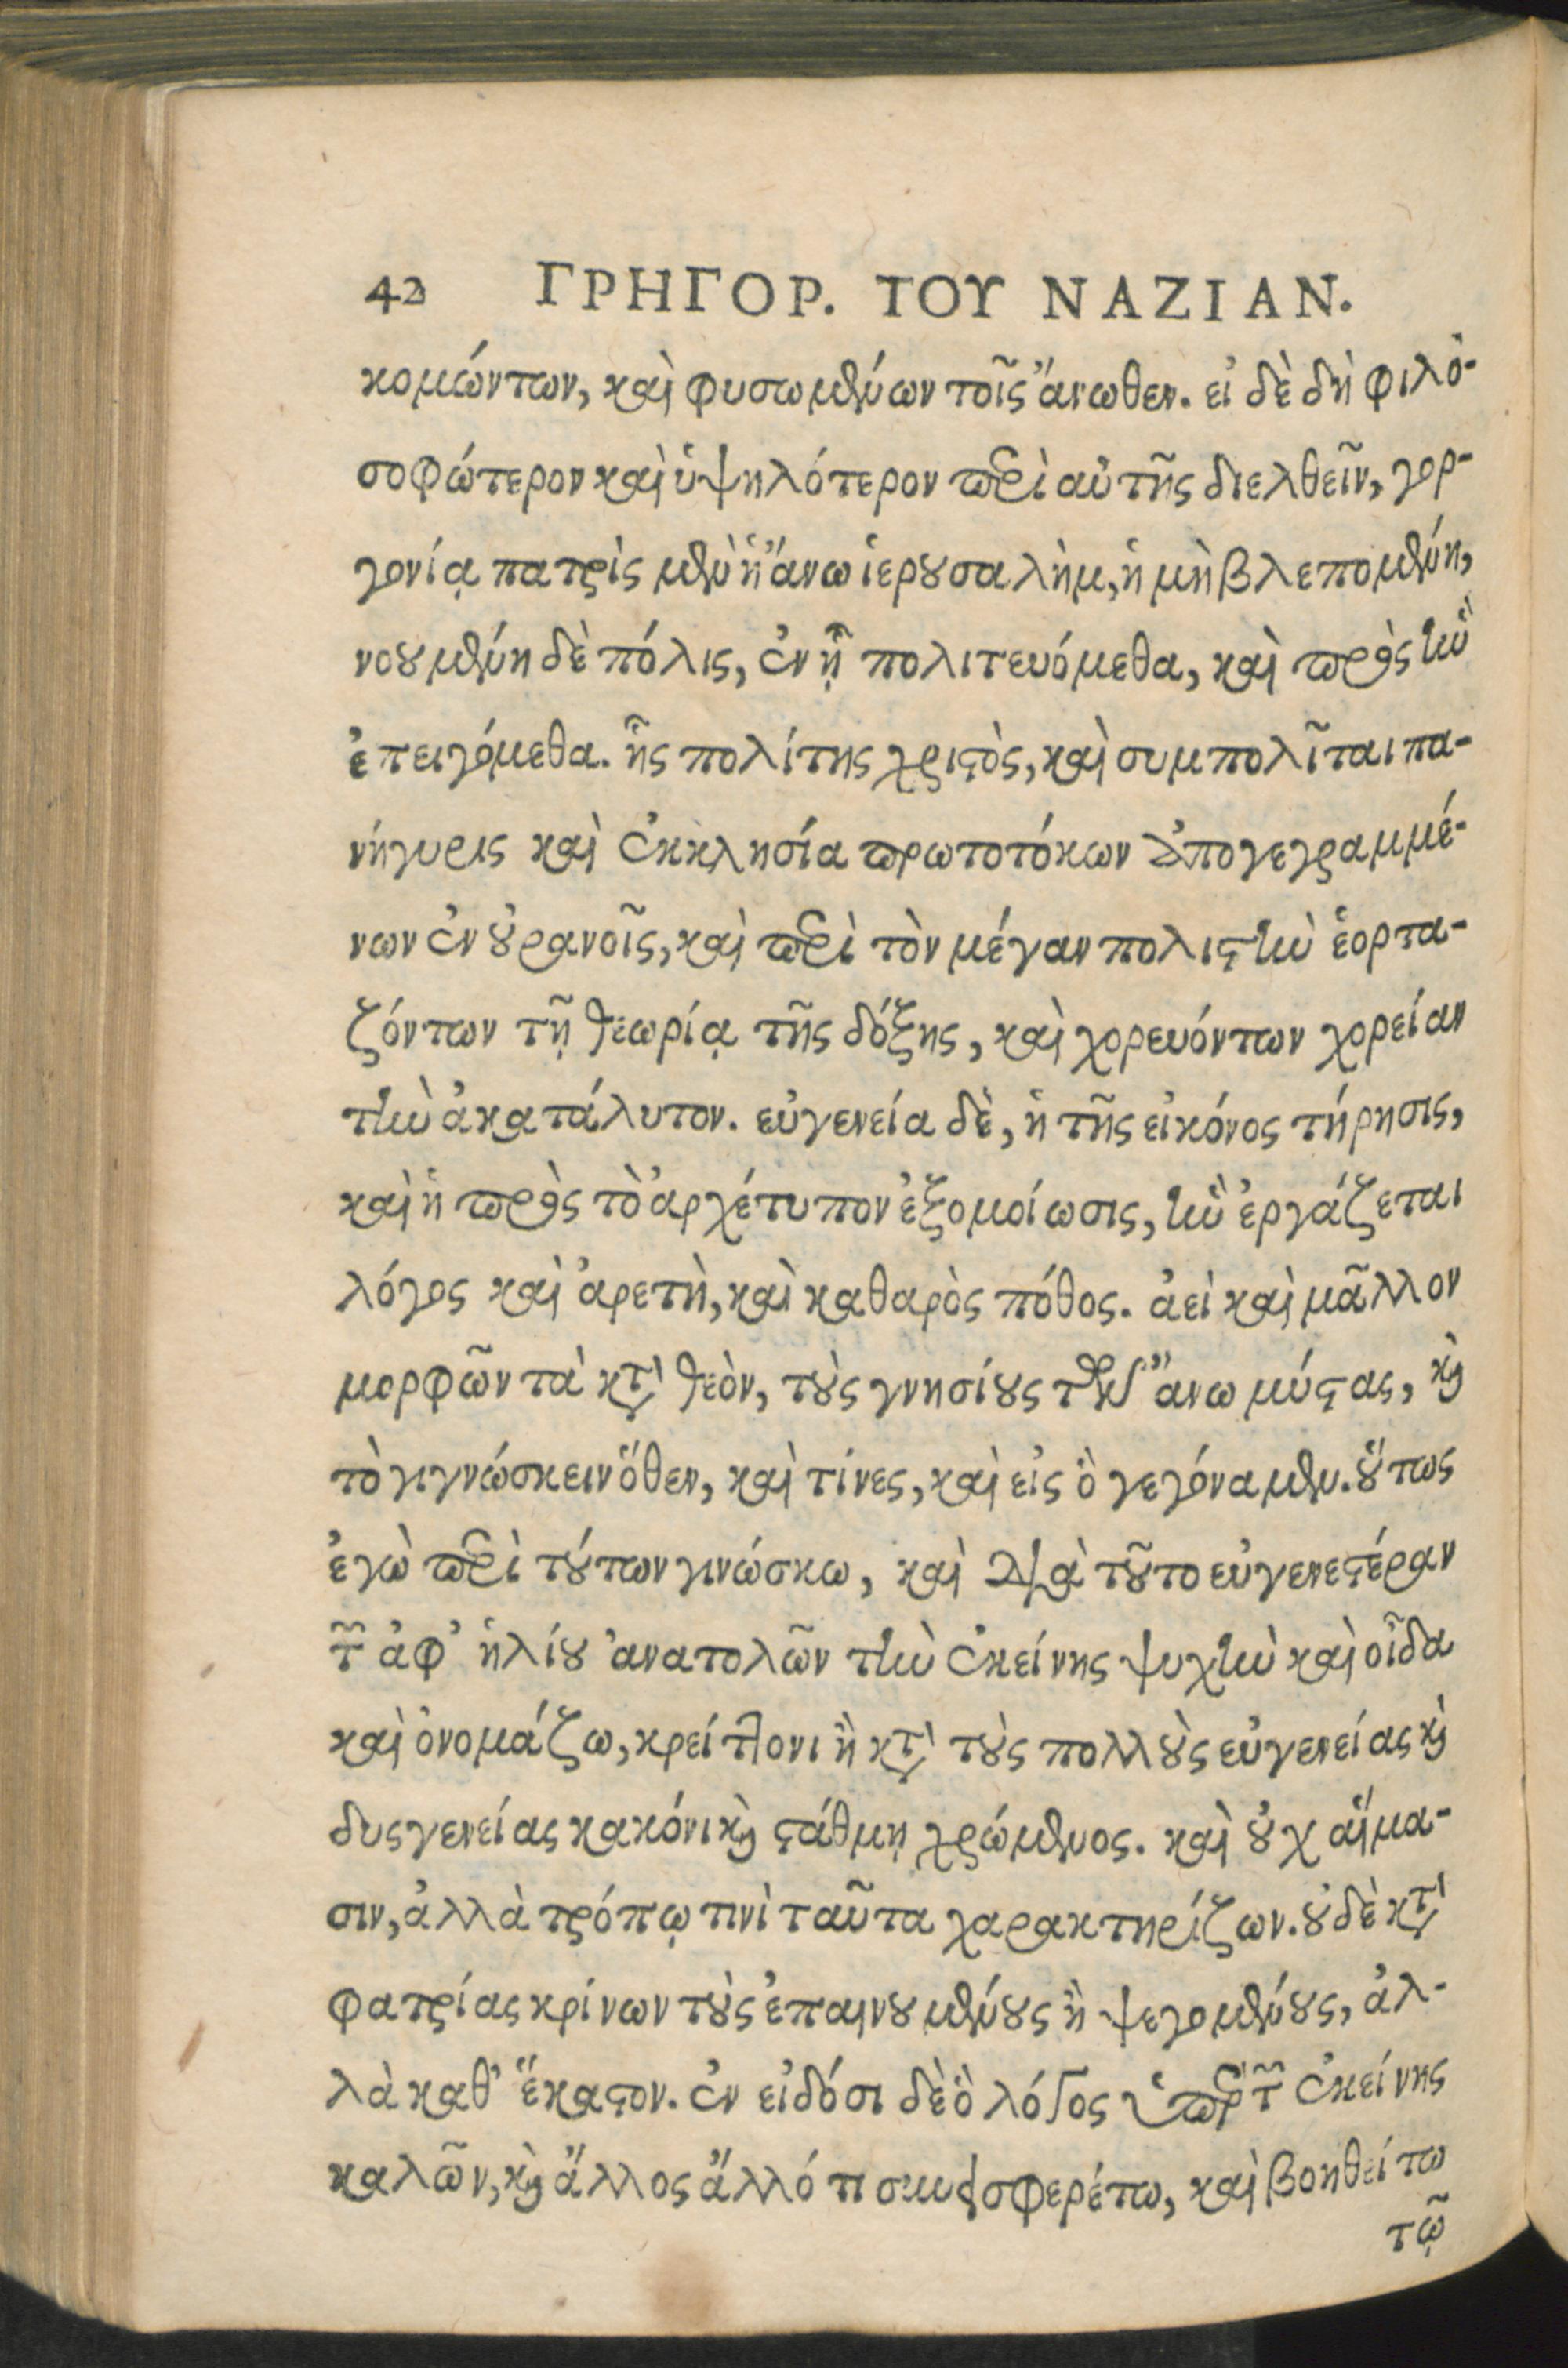 42 ΓΡΗΓΟΡ. ΤΟΥ ΝΑΖΙΑΝ.
κομώντων, καὶ φυσωμένων τοῖς ἄνωθεν. εἰ δὲ δὴ φιλο-
σοφώτερον καὶ ὑψηλότερον περὶ αὐτῆς διελθεῖν, γορ-
γονίᾳ πατρὶς μὲν ἡ ἄνω ἱερουσαλὴμ, ἡ μὴ βλεπομένη,
νοουμένη δὲ πόλις, ἐν ᾗ πολιτευόμεθα, καὶ πρὸς ἣν
ἐπειγόμεθα. ἧς πολίτης χριστὸς, καὶ συμπολῖται πα-
νήγυρις καὶ ἐκκλησία πρωτοτόκων ἀπογεγραμμέ-
νων ἐν οὐρανοῖς, καὶ περὶ τὸν μέγαν πολιστὴν ἑορτα-
ζόντων τῇ θεωρίᾳ τῆς δόξης, καὶ χορευόντων χορείαν
τὴν ἀκατάλυτον. εὐγενεία δὲ, ἡ τῆς εἰκόνος τήρησις,
καὶ ἡ πρὸς τὸ ἀρχέτυπον ἐξομοίωσις, ἣν ἐργάζεται
λόγος καὶ ἀρετὴ, καὶ καθαρὸς πόθος. ἀεὶ καὶ μᾶλλον
μορφῶν τὰ κατὰ θεὸν, τοὺς γνησίους τῶν ἄνω μύστας, καὶ
τὸ γιγνώσκειν ὅθεν, καὶ τίνες, καὶ εἰς ὃ γεγόναμεν. οὕτως
ἐγὼ περὶ τούτων γινώσκω, καὶ διὰ τοῦτο εὐγενεστέραν
τῶν ἀφ’ ἡλίου ἀνατολῶν τὴν ἐκείνης ψυχὴν καὶ οἶδα
καὶ ὀνομάζω, κρείττονι ἢ κατὰ τοὺς πολλοὺς εὐγενείας καὶ
δυσγενείας κακόνι καὶ στάθμῃ χρώμενος. καὶ οὐχ αἵμα-
σιν, ἀλλὰ τρόπῳ τινὶ ταῦτα χαρακτηρίζων. οὐδὲ κατὰ
φατρίας κρίνων τοὺς ἐπαινουμένους ἢ ψεγομένους, ἀλ-
λὰ καθ’ ἕκαστον. ἐν εἰδόσι δὲ ὁ λόγος ὑπὲρ τῶν ἐκείνης
καλῶν, καὶ ἄλλος ἄλλό τι συνεισφερέτω, καὶ βοηθείτω
τῷ